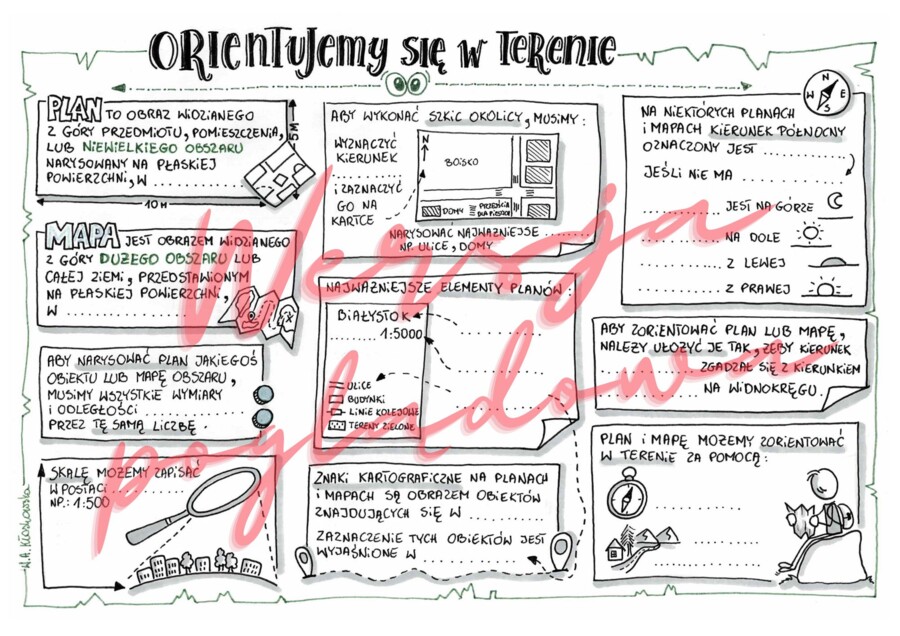 ORIENTUJEMY SIĘ W TERENIE
PLAN TO OBRAZ WIDZIANEGO
Z GÓRY PRZEDMIOTU, POMIESZCZENIA,
LUB NIEWIELKIEGO OBSZARU
NARYSOWANY NA PŁASKIEJ
POWIERZCHNI, W ....................
5M
10M
MAPA JEST OBRAZEM WIDZIANEGO
Z GÓRY DUŻEGO OBSZARU LUB
CAŁEJ ZIEMI, PRZEDSTAWIONYM
NA PŁASKIEJ POWIERZCHNI,
W ....................
ABY NARYSOWAĆ PLAN JAKIEGOŚ
OBIEKTU LUB MAPĘ OBSZARU,
MUSIMY WSZYSTKIE WYMIARY
I ODLEGŁOŚCI ....................
PRZEZ TĘ SAMĄ LICZBĘ.
SKALĘ MOŻEMY ZAPISAĆ
W POSTACI ..............
NP.: 1:500
ABY WYKONAĆ SZKIC OKOLICY, MUSIMY:
WYZNACZYĆ
KIERUNEK
..............
I ZAZNACZYĆ
GO NA
KARTCE
N
BOISKO
DOMY
PRZEJŚCIA
DLA PIESZYCH
NARYSOWAĆ NAJWAŻNIEJSZE
.................... NP. ULICE, DOMY
NAJWAŻNIEJSZE ELEMENTY PLANÓW:
BIAŁYSTOK
.......... 1:5000
ULICE
BUDYNKI
LINIE KOLEJOWE
TERENY ZIELONE
....................
....................
....................
ZNAKI KARTOGRAFICZNE NA PLANACH
I MAPACH SĄ OBRAZEM OBIEKTÓW
ZNAJDUJĄCYCH SIĘ W ....................
ZAZNACZENIE TYCH OBIEKTÓW JEST
WYJAŚNIONE W ....................
N
W E
S
NA NIEKTÓRYCH PLANACH
I MAPACH KIERUNEK PÓŁNOCNY
OZNACZONY JEST ....................
JEŚLI NIE MA ....................
.............. JEST NA GÓRZE
.............. NA DOLE
.............. Z LEWEJ
.............. Z PRAWEJ
ABY ZORIENTOWAĆ PLAN LUB MAPĘ,
NALEŻY UŁOŻYĆ JE TAK, ŻEBY KIERUNEK
.................... ZGADZAŁ SIĘ Z KIERUNKIEM
.................... NA WIDNOKRĘGU.
PLAN I MAPĘ MOŻEMY ZORIENTOWAĆ
W TERENIE ZA POMOCĄ:
....................
....................
....................
Wersja
poglądowa